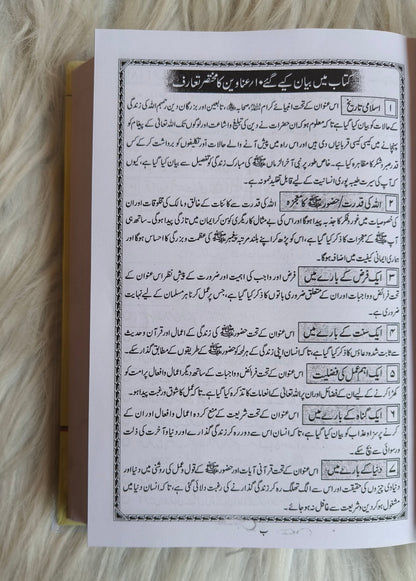 کتاب میں بیان کیے گئے ۱۰ عناوین کا مختصر تعارف
۱ اسلامی تاریخ اس عنوان کے تحت انبیائے کرام علیہم السلام، صحابہ، تابعین اور بزرگان دین رحمہم اللہ کی زندگی
کے حالات کو بیان کیا گیا ہے تا کہ معلوم ہو کہ ان حضرات نے دین کی تبلیغ و اشاعت اور لوگوں تک اللہ تعالیٰ کے پیغام کو
پہنچانے میں کیسی کیسی قربانیاں دی ہیں اور اس راہ میں پیش آنے والے حالات اور تکلیفوں کو برداشت کر کے کس
قدر صبر و شکر کا مظاہرہ کیا ہے۔ خاص طور پر نبی آخر الزماں ﷺ کی مبارک زندگی کو تفصیل سے بیان کیا ہے، کیوں
کہ آپ کی سیرت طیبہ پوری انسانیت کے لیے قابل تقلید نمونہ ہے۔
۲ اللہ کی قدرت / حضور ﷺ کا معجزہ اللہ کی قدرت سے کائنات کے خالق و مالک کی مخلوقات اور ان
کی خصوصیات میں غور و فکر کا جذبہ پیدا ہوگا اور اس کی بے مثال کاریگری کو سن کر ایمان میں تازگی پیدا ہوگی۔ ساتھ ہی
آپ ﷺ کے معجزات کا ذکر کیا گیا ہے، اس کو پڑھ کر اپنے بلند مرتبہ پیغمبر ﷺ کی عظمت و بزرگی کا احساس ہوگا اور
ہماری ایمانی کیفیت میں اضافہ ہوگا۔
۳ ایک فرض کے بارے میں فرض اور واجب کی اہمیت اور ضرورت کے پیش نظر اس عنوان کے
تحت فرائض و واجبات اور ان کے متعلق ضروری باتوں کا ذکر کیا گیا ہے، جس پر عمل کرنا ہر مسلمان کے لیے نہایت
ضروری ہے۔
۴ ایک سنت کے بارے میں اس عنوان کے تحت حضور ﷺ کی زندگی کے اعمال اور قرآن و حدیث
سے ثابت شدہ دعاؤں کا ذکر کیا گیا ہے، تا کہ انسان اپنی زندگی کے ہر لمحہ کو حضور ﷺ کے طریقوں کے مطابق گذار سکے۔
۵ ایک اہم عمل کی فضیلت اس عنوان کے تحت فرائض و واجبات کے ساتھ دیگر اعمال پر امت کو
کھڑا کرنے کے لیے ان کے فضائل اور ان پر اللہ تعالیٰ کے انعامات کا تذکرہ کیا گیا ہے، تا کہ عمل کا شوق و رغبت پیدا ہو۔
۶ ایک گناہ کے بارے میں اس عنوان کے تحت شریعت کے منع کردہ اعمال و افعال اور ان کے
کرنے پر سزا و عذاب کو بیان کیا گیا ہے، تا کہ انسان اس سے دور رہ کر زندگی گذارے اور دنیا و آخرت کی ذلت
و رسوائی سے بچ سکے۔
۷ دنیا کے بارے میں اس عنوان کے تحت قرآنی آیات اور حضور ﷺ کے قول و عمل کی روشنی میں دنیا اور
دنیاوی چیزوں کی حقیقت اور اس سے الگ تھلگ رہ کر زندگی گذارنے کی رغبت دلائی گئی ہے، تا کہ انسان دنیا میں
مشغول ہو کر دین و شریعت سے غافل نہ ہو جائے۔
ب